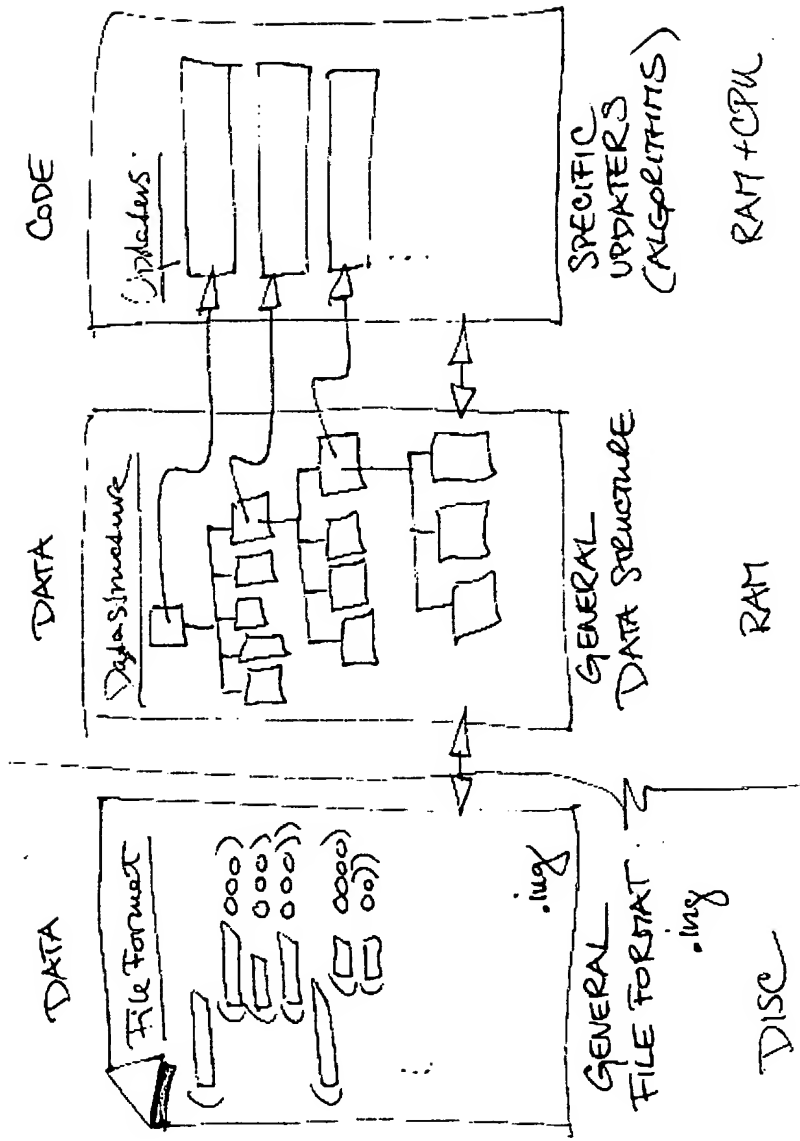 DATA
File Format
(
( ooo)
( ooo)
( ooo))
(
( oooo)
( oo))
...
.ing
GENERAL
FILE FORMAT:
.ing
DISC
DATA
Datastructure
GENERAL
DATA STRUCTURE
RAM
CODE
Updaters.
...
SPECIFIC
UPDATERS
(ALGORITHMS)
RAM + CPU